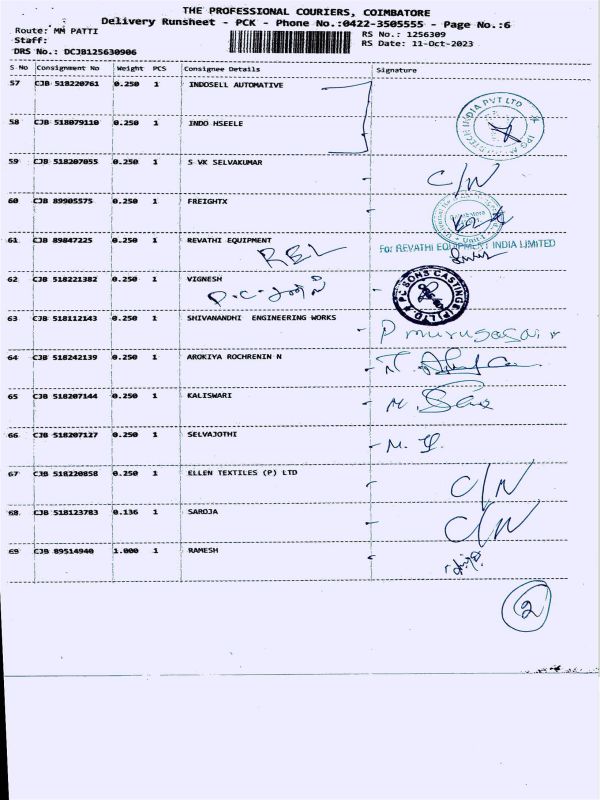 THE PROFESSIONAL COURIERS, COIMBATORE
Delivery Runsheet - PCK - Phone No.:0422-3505555 - Page No.:6
Route: MM PATTI RS No.: 1256309
Staff: RS Date: 11-Oct-2023
DRS No.: DCJB125630906
S No Consignment No Weight PCS Consignee Details Signature
57 CJB 518220761 0.250 1 INDOSELL AUTOMATIVE
58 CJB 518079110 0.250 1 INDO HSEELE
59 CJB 518207055 0.250 1 S VK SELVAKUMAR C/N
60 CJB 89905575 0.250 1 FREIGHTX
61 CJB 89847225 0.250 1 REVATHI EQUIPMENT REL For REVATHI EQUIPMENT INDIA LIMITED
62 CJB 518221382 0.250 1 VIGNESH P.C. PC SONS CASTINGS (P) LTD
63 CJB 518112143 0.250 1 SHIVANANDHI ENGINEERING WORKS
64 CJB 518242139 0.250 1 AROKIYA ROCHRENIN N
65 CJB 518207144 0.250 1 KALISWARI
66 CJB 518207127 0.250 1 SELVAJOTHI
67 CJB 518220858 0.250 1 ELLEN TEXTILES (P) LTD C/N
68 CJB 518123783 0.136 1 SAROJA C/N
69 CJB 89514940 1.000 1 RAMESH
2